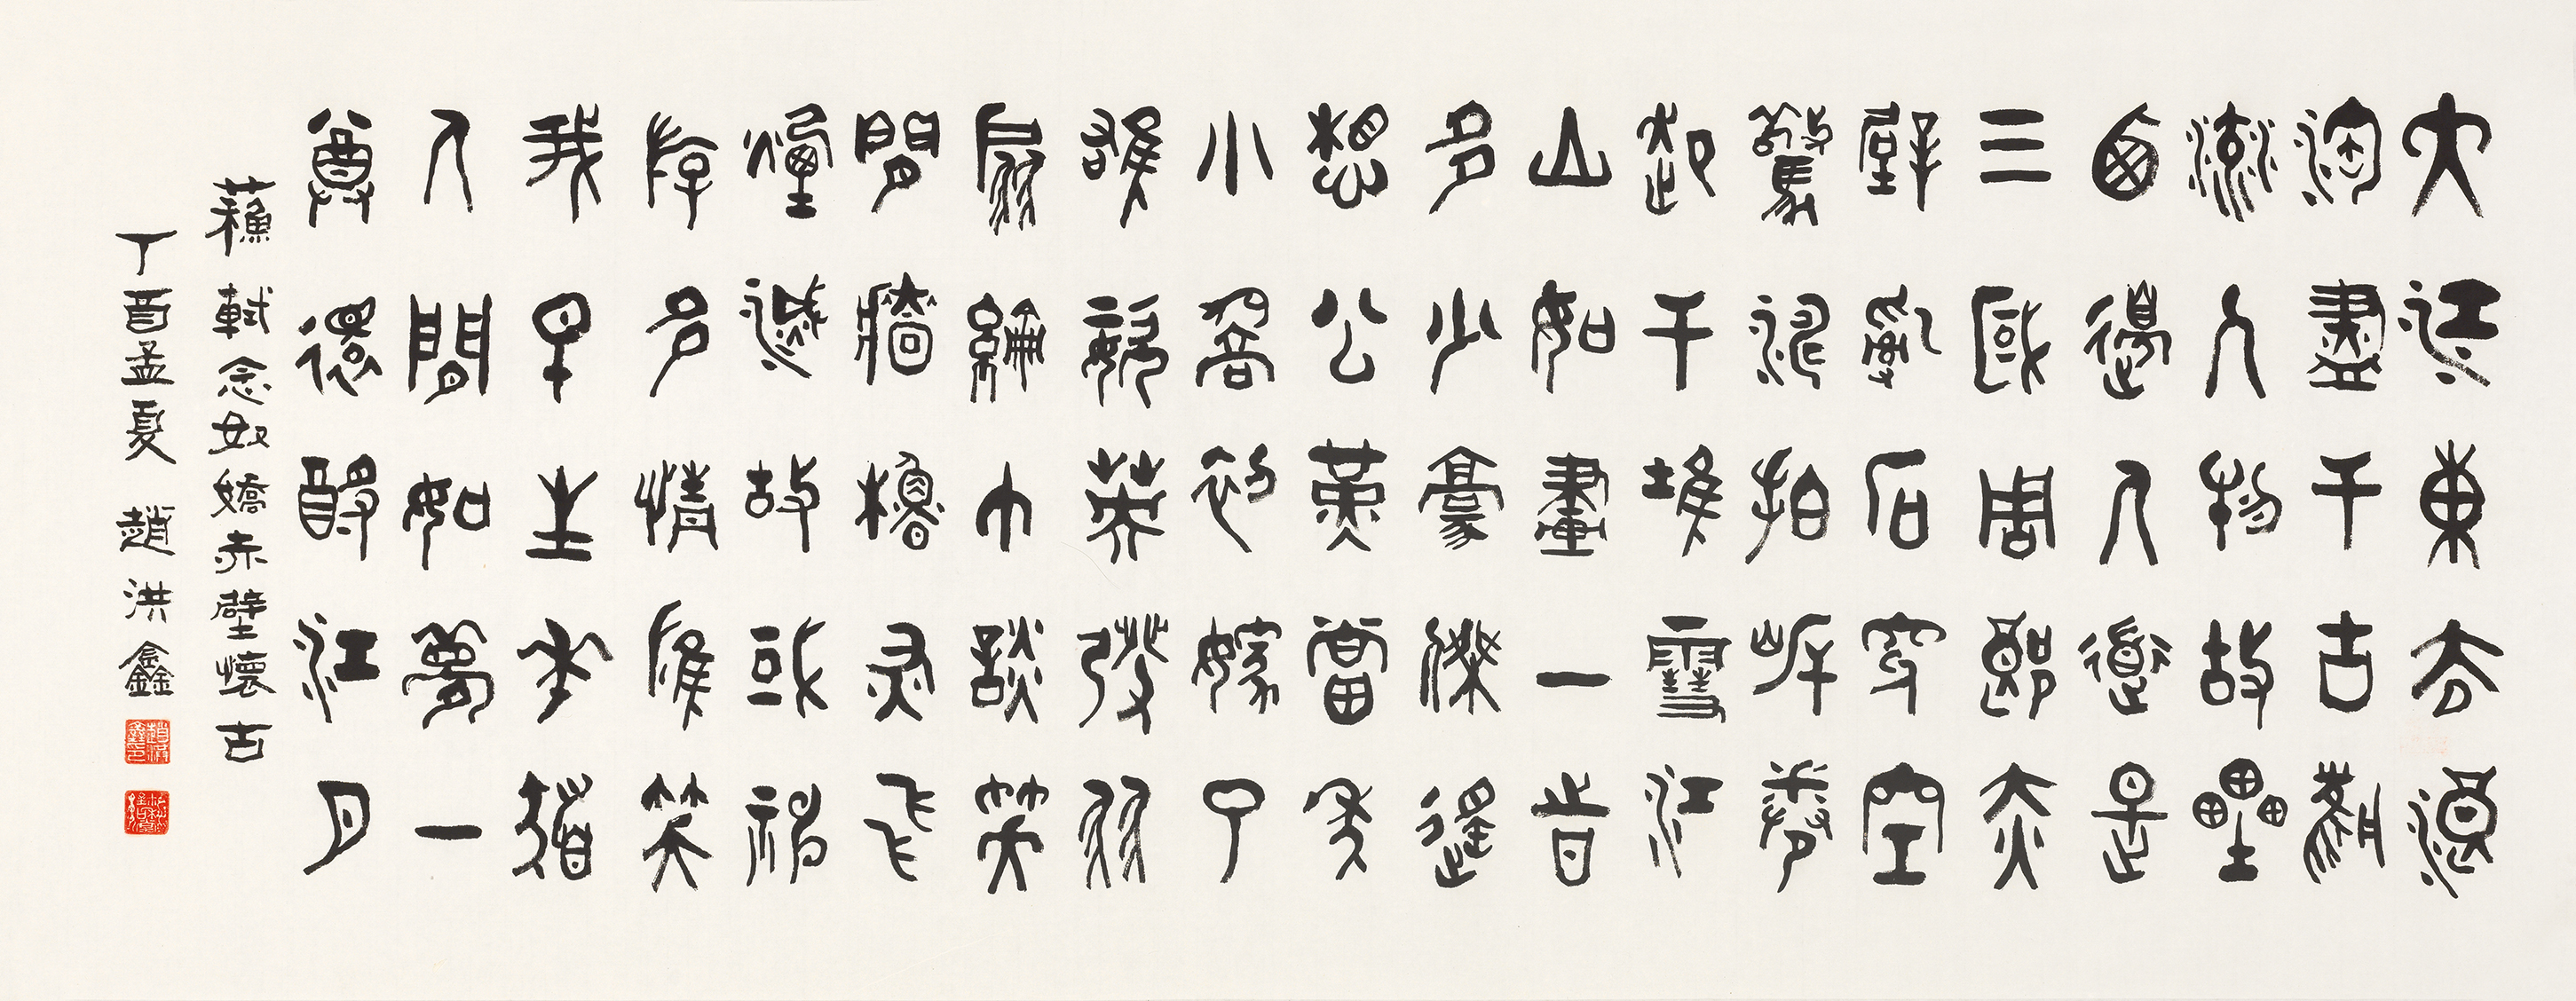 大江東去浪
淘盡千古風
流人物故壘
西邊人道是
三國周郎赤
壁亂石穿空
驚濤拍岸卷
起千堆雪江
山如畫一時
多少豪傑遙
想公瑾當年
小喬初嫁了
雄姿英發羽
扇綸巾談笑
間牆櫓灰飛
煙滅故國神
遊多情應笑
我早生華髮
人間如夢一
尊還酹江月
蘇軾念奴嬌赤壁懷古
丁酉孟夏 趙洪鑫
趙洪鑫印